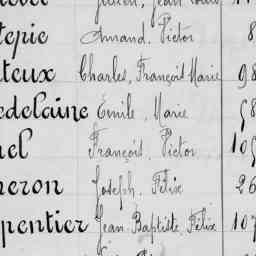 Jean Louis
tepie Amand, Victor 8
teux Charles, François Marie 98
edelaine Emile, Marie 58
nel François, Victor 105
neron Joseph, Félix 26
pentier Jean Baptiste Félix 107